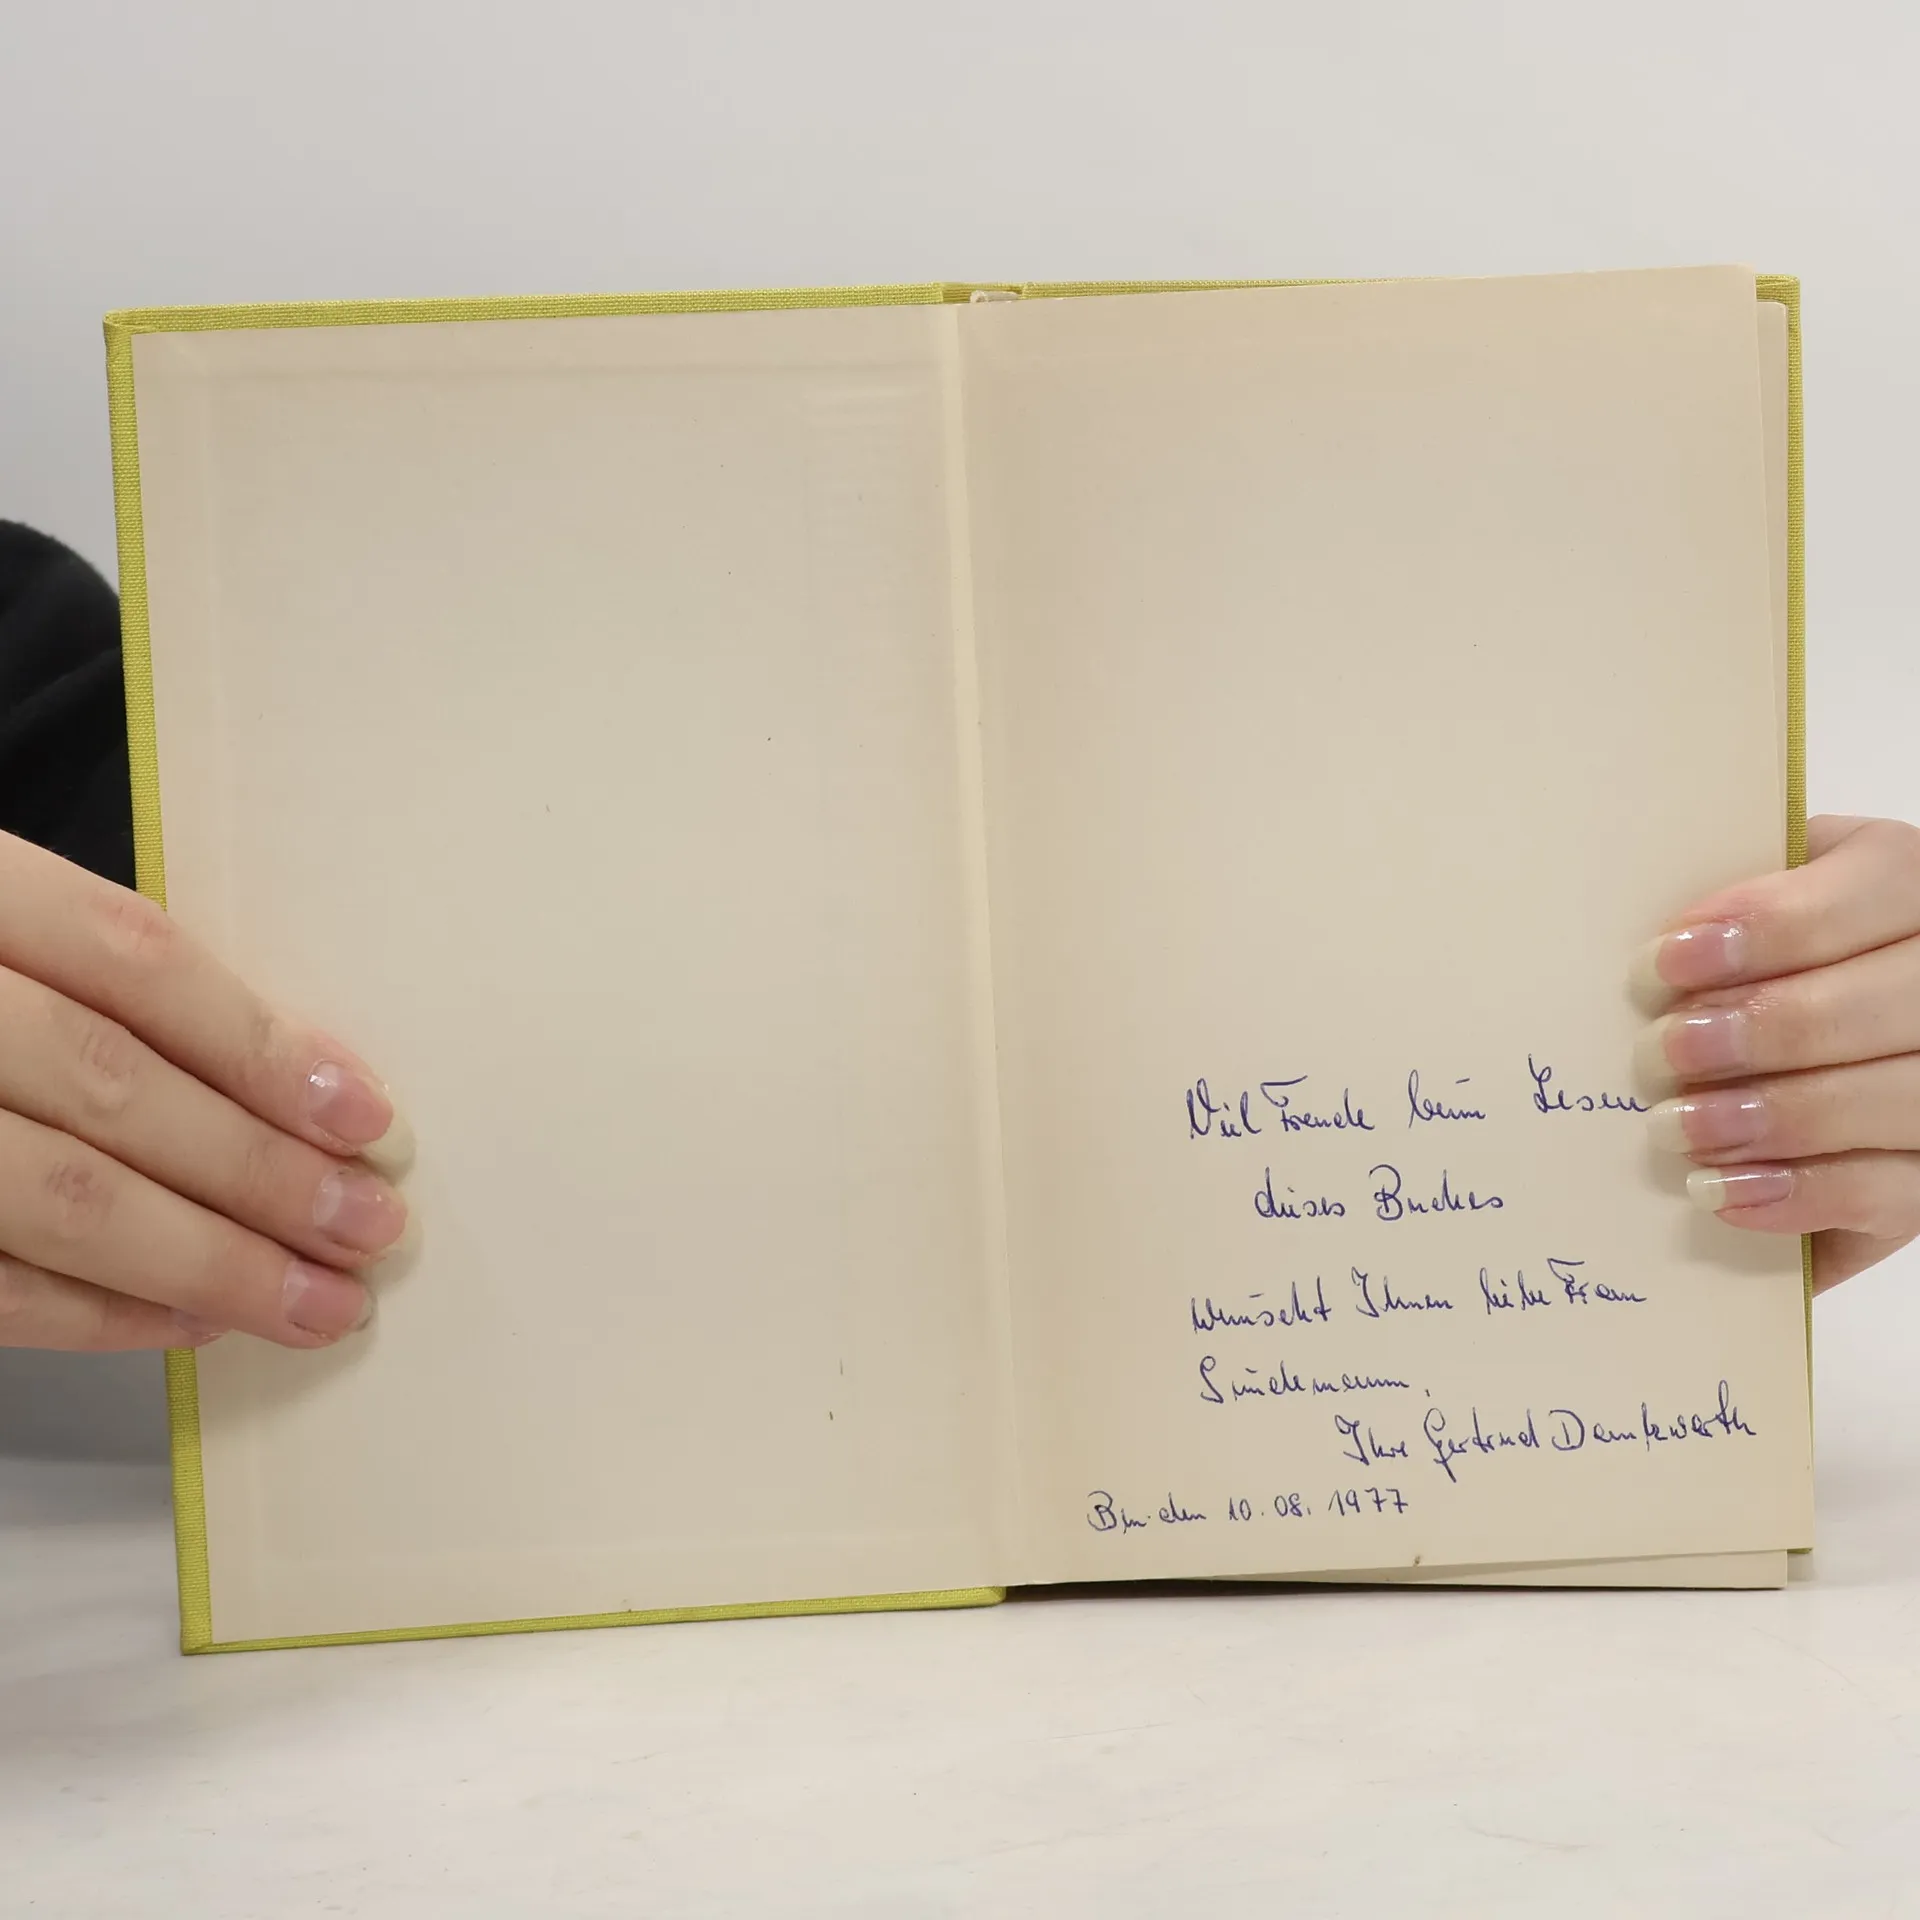 Viel Freude beim Lesen
dieses Buches
wünscht Ihnen liebe Frau
Lindemann,
Ihre Gertrud Dankwarth
Bln. den 10.08.1977